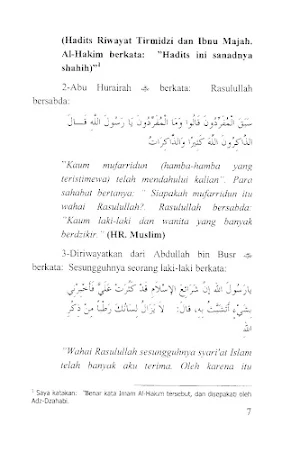 (Hadits Riwayat Tirmidzi dan Ibnu Majah.
Al-Hakim berkata: "Hadits ini sanadnya
shahih)"¹
2-Abu Hurairah berkata: Rasulullah
bersabda:
سَبَقَ الْمُفَرِّدُونَ قَالُوا وَمَا الْمُفَرِّدُونَ يَا رَسُولَ اللَّهِ قَالَ
الذَّاكِرُونَ اللَّهَ كَثِيرًا وَالذَّاكِرَاتُ
"Kaum mufarridun (hamba-hamba yang
teristimewa) telah mendahului kalian". Para
sahabat bertanya: " Siapakah mufarridun itu
wahai Rasulullah?. Rasulullah bersabda:
"Kaum laki-laki dan wanita yang banyak
berdzikir." (HR. Muslim)
3-Diriwayatkan dari Abdullah bin Busr
berkata: Sesungguhnya seorang laki-laki berkata:
يَارَسُولَ اللهِ إِنَّ شَرَائِعَ الإِسْلَامِ قَدْ كَثُرَتْ عَلَيَّ فَأَخْبِرْنِي
بِشَيْءٍ أَتَشَبَّثُ بِهِ، قَالَ: لاَ يَزَالُ لِسَانُكَ رَطْبًا مِنْ ذِكْرِ
اللهِ
"Wahai Rasulullah sesungguhnya syari'at Islam
telah banyak aku terima. Oleh karena itu
¹ Saya katakan: "Benar kata Imam Al-Hakim tersebut, dan disepakati oleh
Adz-Dzahabi.
7